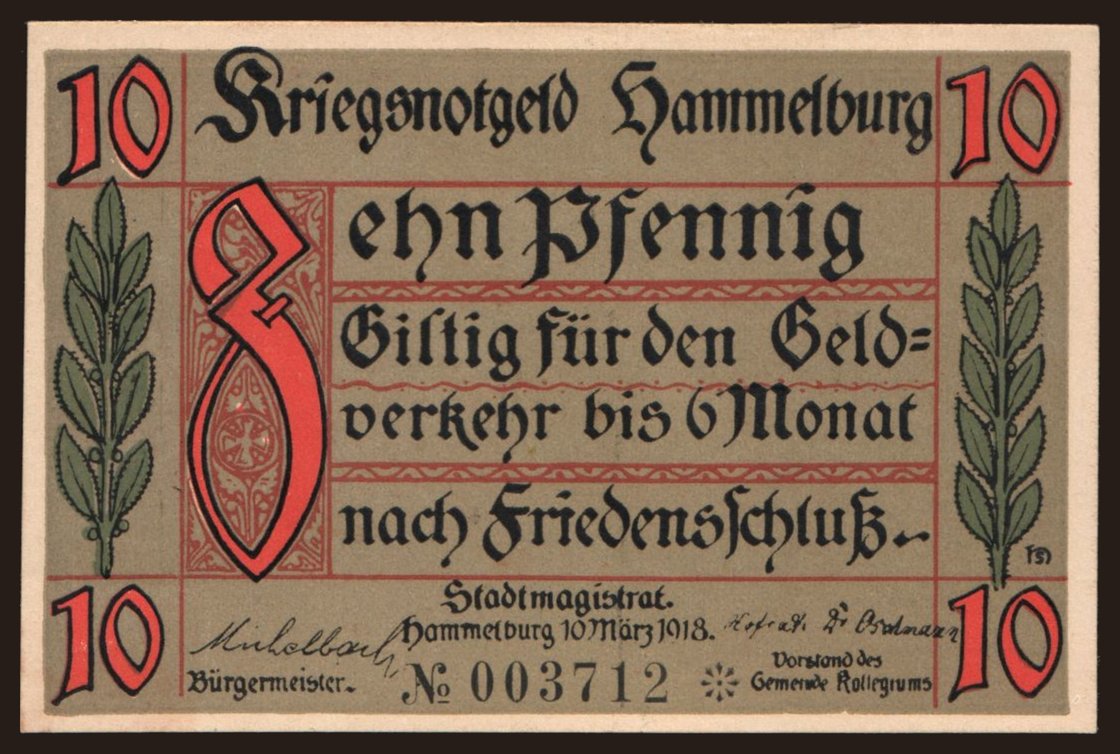 10 Kriegsnotgeld Hammelburg 10
Zehn Pfennig
Giltig für den Geld=
verkehr bis 6 Monat
nach Friedensschluß.
FS
10 Stadtmagistrat. 10
Hammelburg 10 März 1918.
Michelbach Hofrat Dr
Bürgermeister. № 003712 Vorstand des
Gemeinde Kollegiums